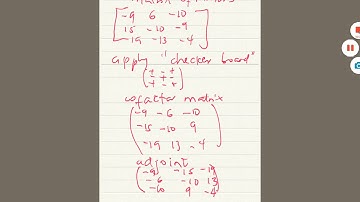 matrix of minors
-9 6 -10
15 -10 -9
-19 -13 -4
apply "checker board"
+ - +
- + -
+ - +
cofactor matrix
-9 -6 -10
-15 -10 9
-19 13 -4
adjoint
-9 -15 -19
-6 -10 13
-10 9 -4